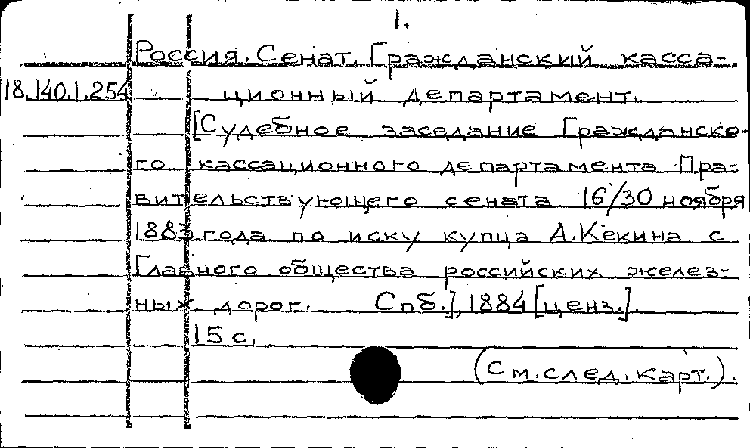 1.
Россия. Сенат. Гражданский касса-
18.140.1.254 ционный департамент.
[Судебное заседание Гражданско-
го кассационного департамента Пра-
вительствующего сената 16/30 ноября
1883 года по иску купца А. Кекина с
Главного общества российских желез-
ных дорог. Спб.], 1884 [ценз.].
15 с.
(См. след. карт.).